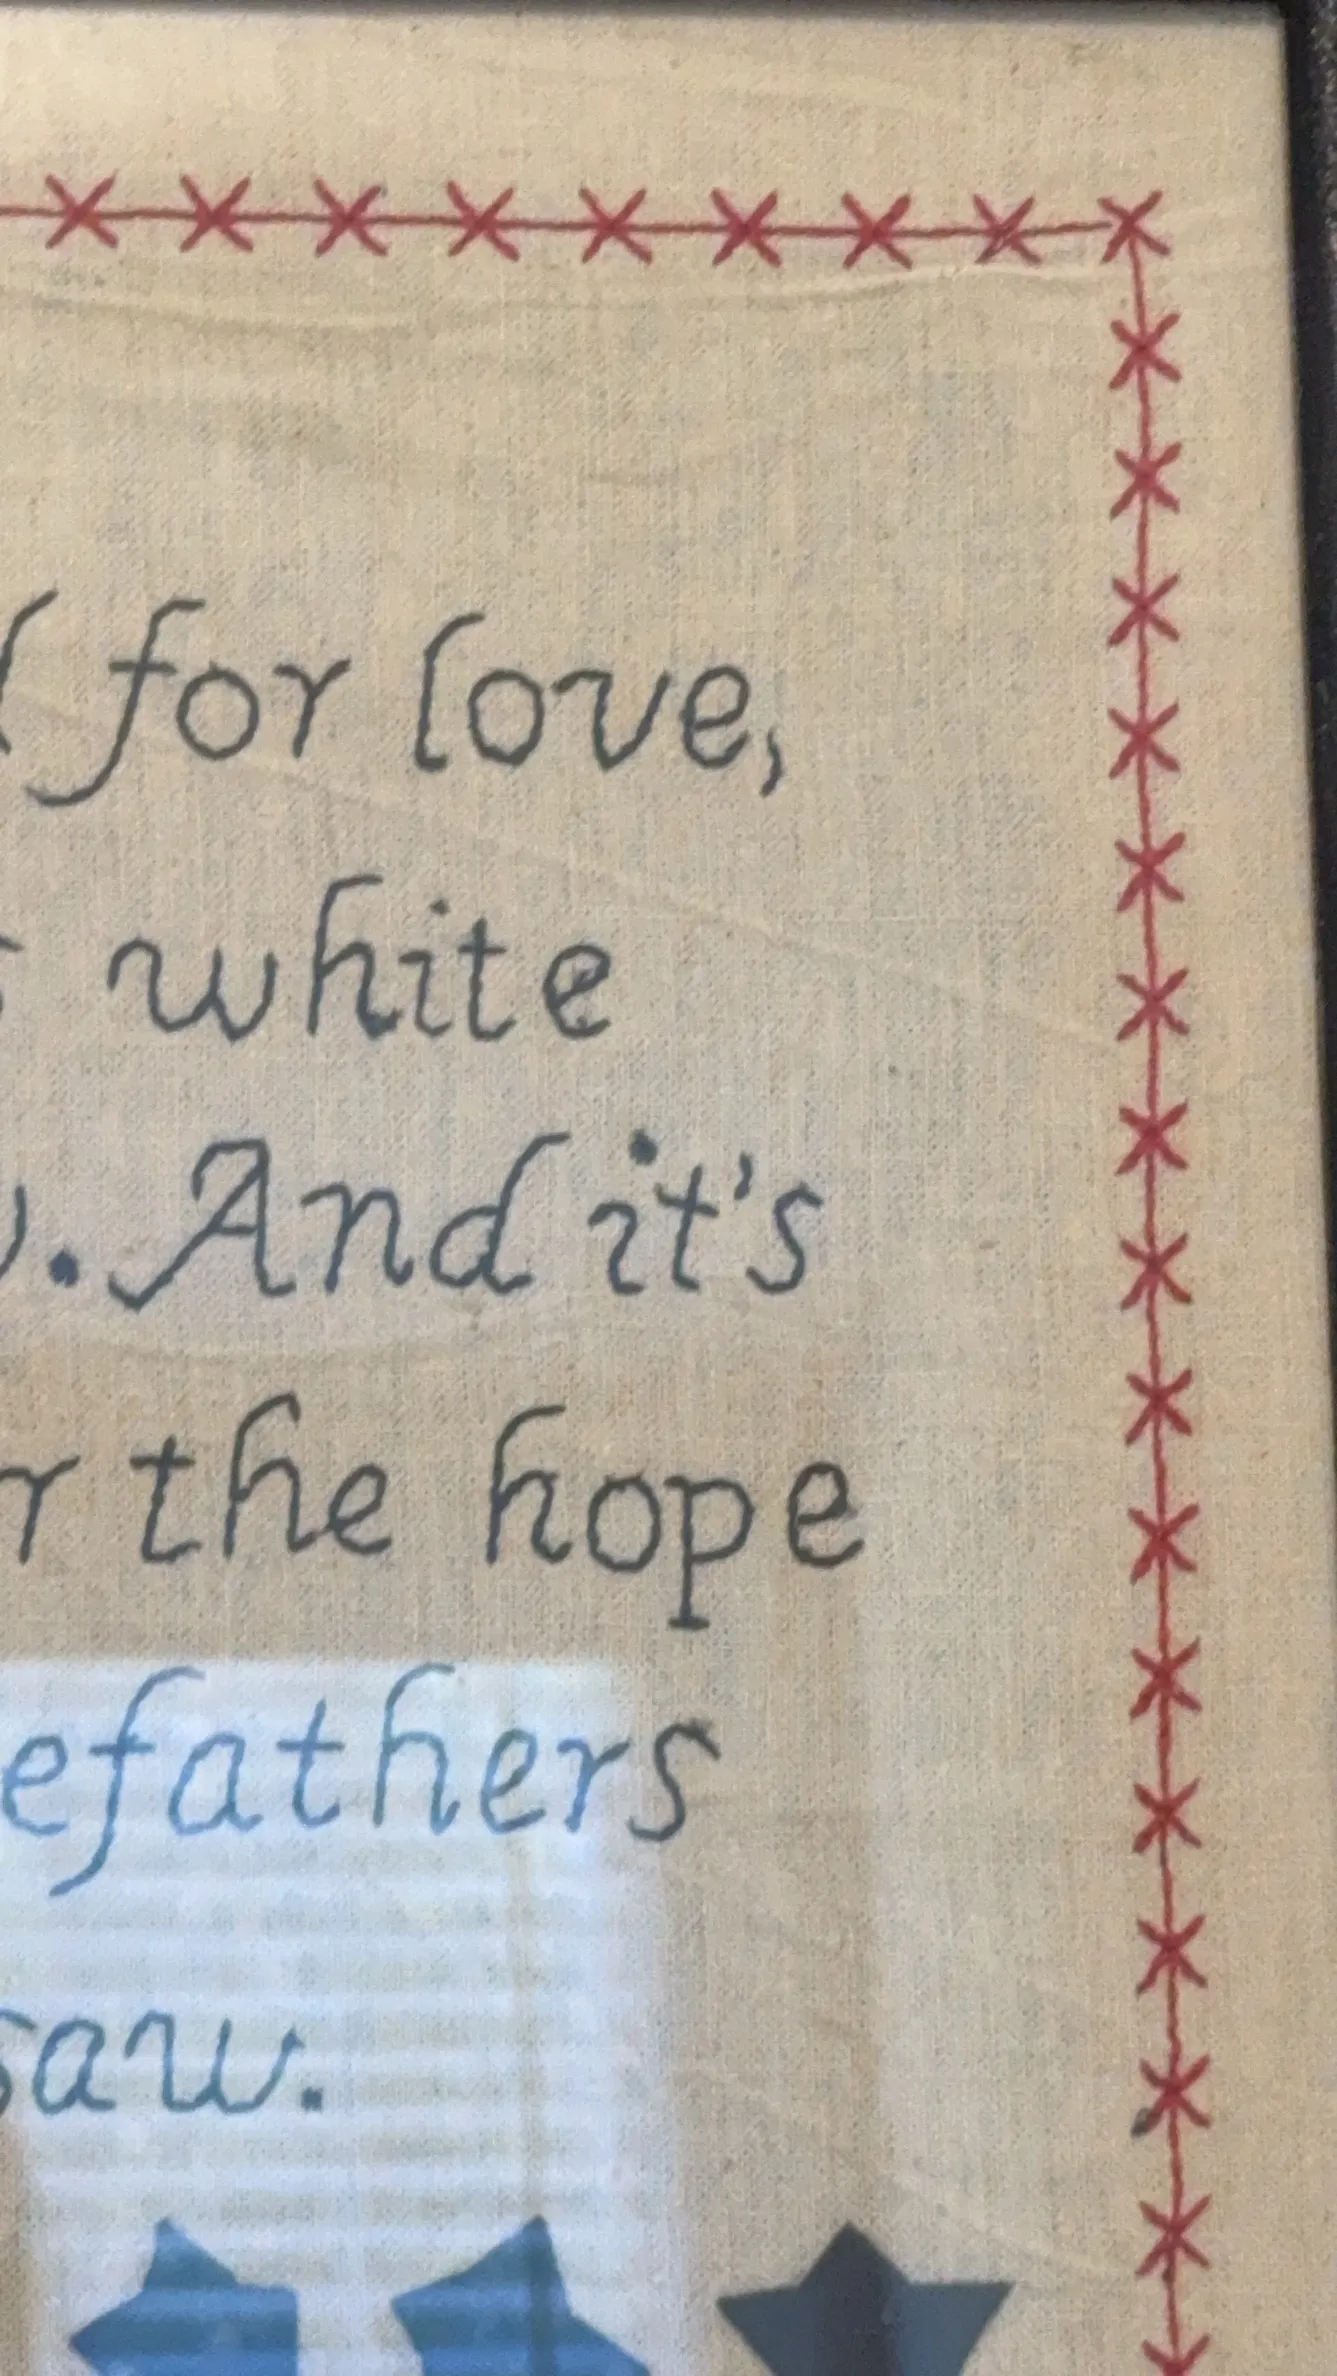 for love,
white
. And it's
r the hope
efathers
saw.